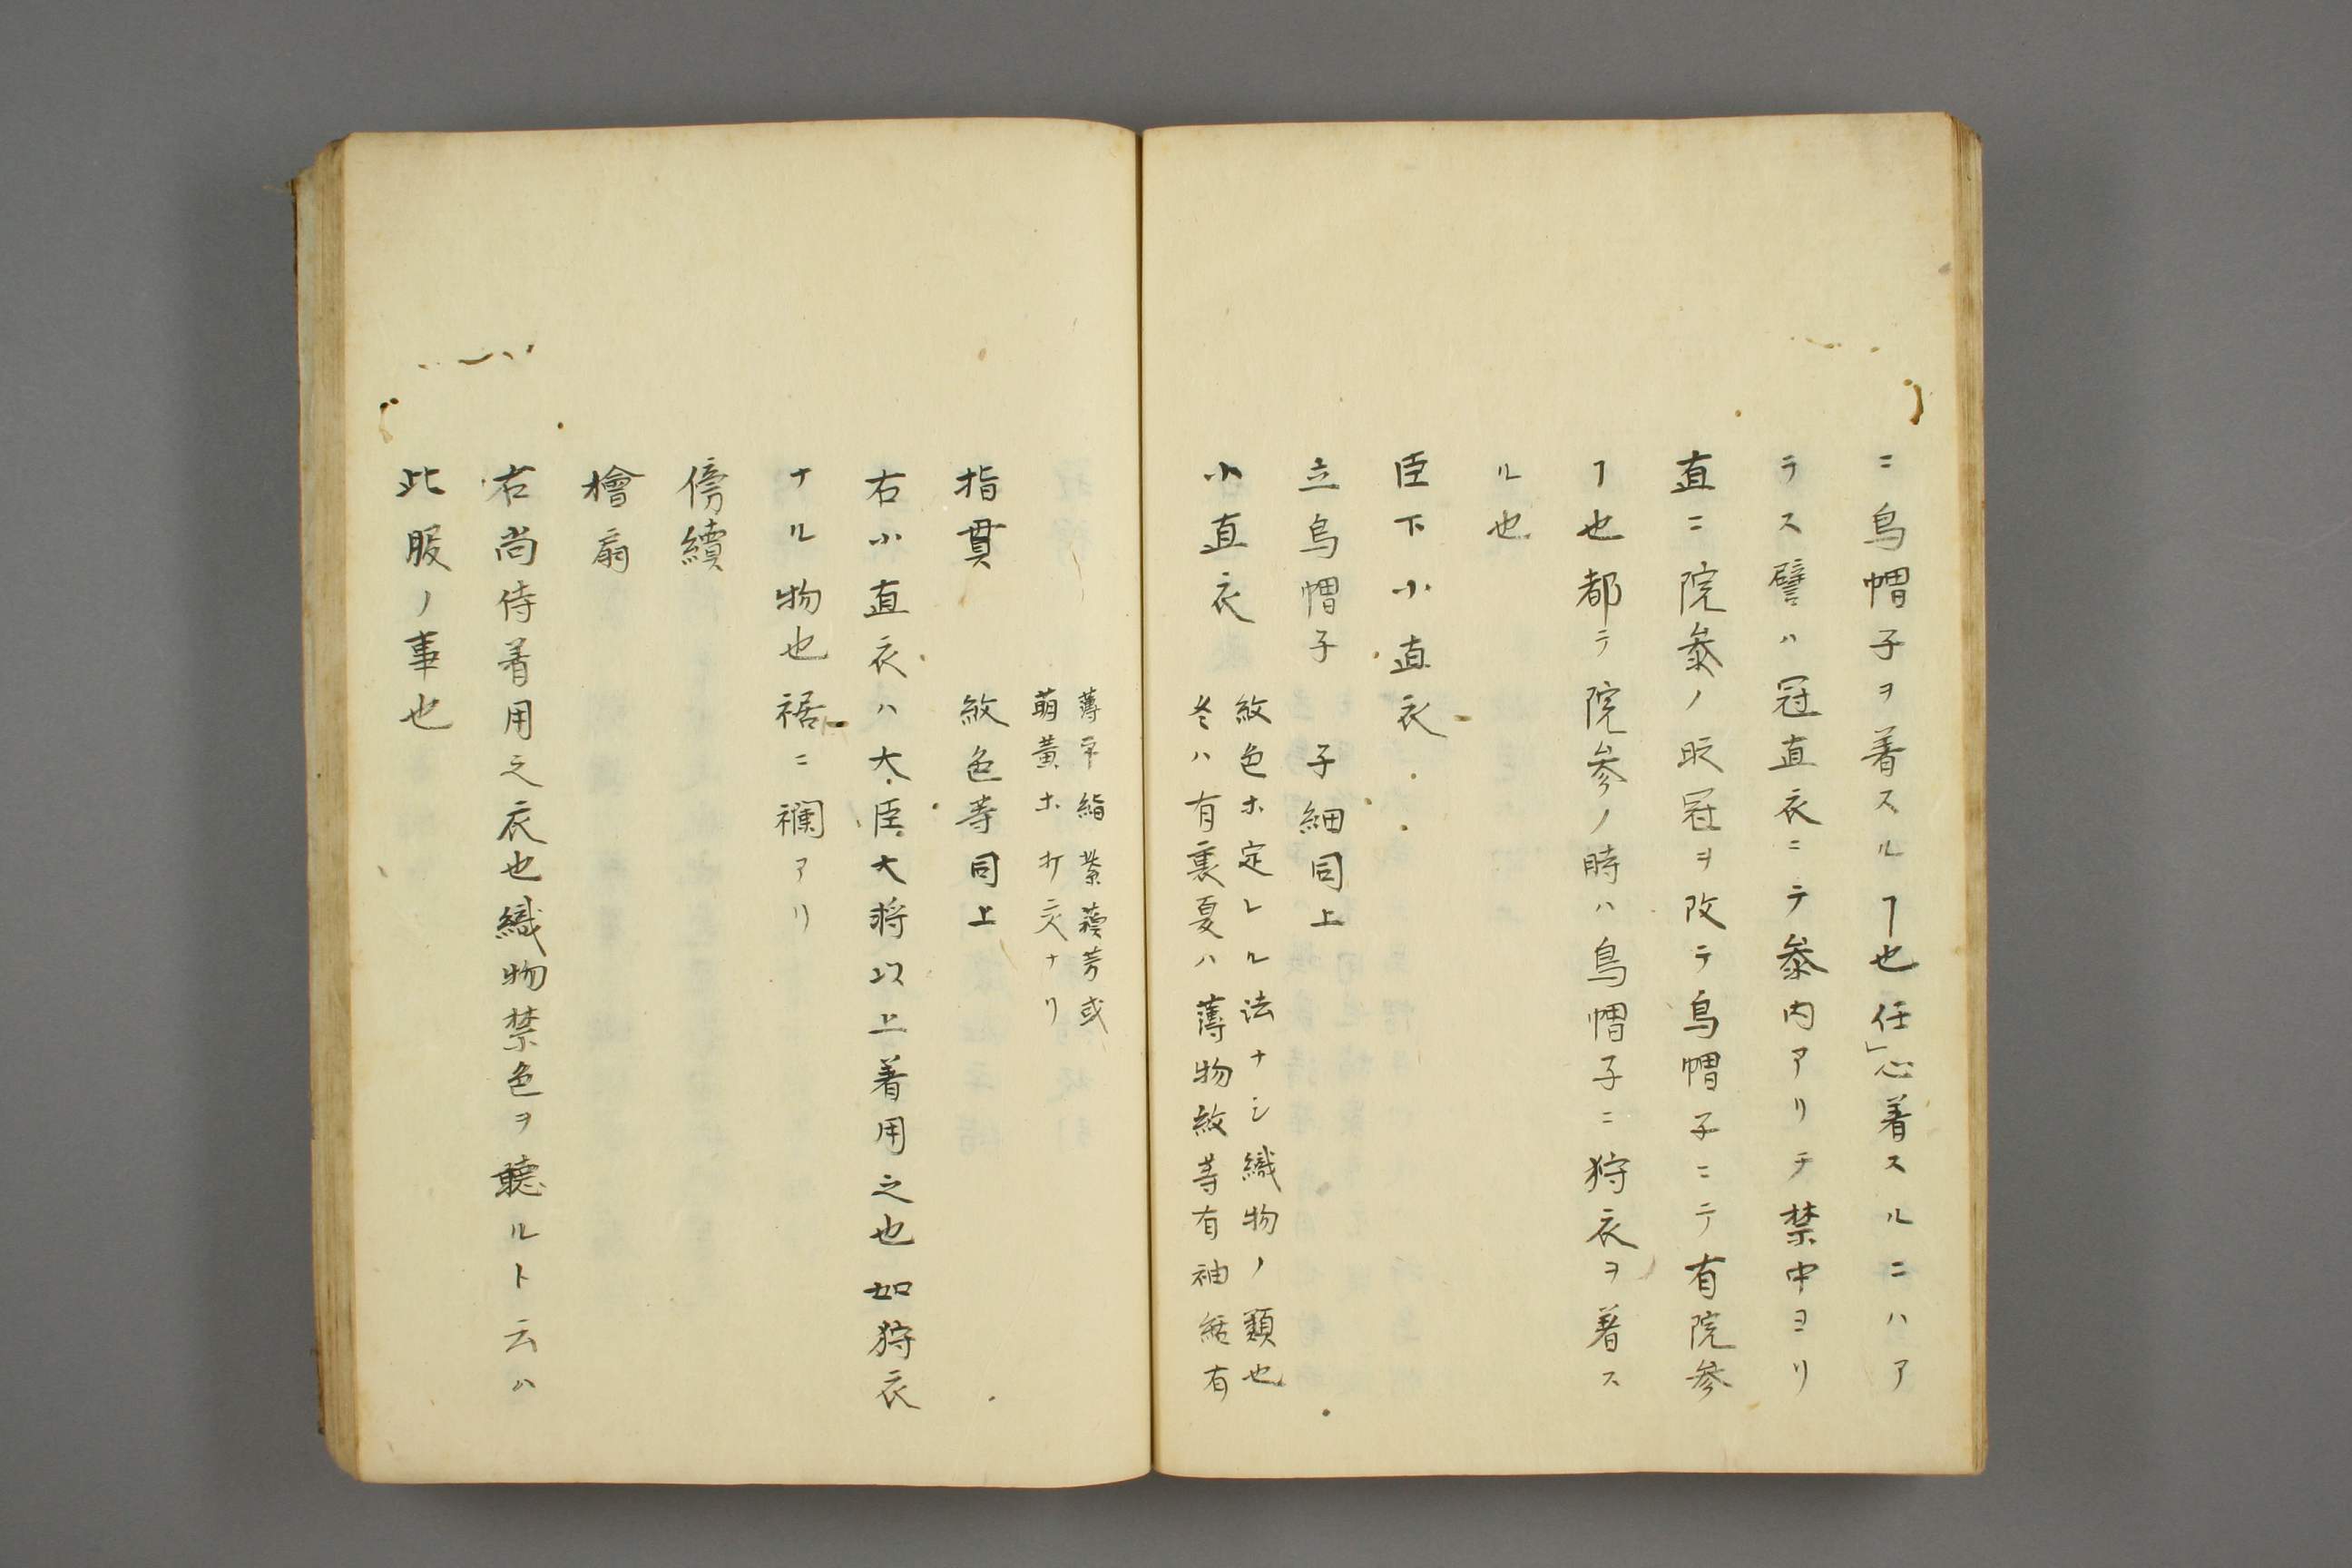 ニ烏帽子ヲ着スルヿ也任心着スルニハア
ラス譬ハ冠直衣ニテ参内アリテ禁中ヨリ
直ニ院参ノ時冠ヲ改テ烏帽子ニテ有院参
ヿ也都テ院参ノ時ハ烏帽子ニ狩衣ヲ着ス
ル也
臣下小直衣
立烏帽子 子細同上
小直衣 紋色ホ定レル法ナシ織物ノ類也
冬ハ有裏夏ハ薄物紋等有袖結有
薄平絹紫蘓芳或
萌黄ホ打交ナリ
指貫 紋色等同上
右小直衣ハ大臣大将以上着用之也如狩衣
ナル物也裾ニ襴アリ
傍續
檜扇
右尚侍着用之衣也織物禁色ヲ聴ルト云ハ
此服ノ事也